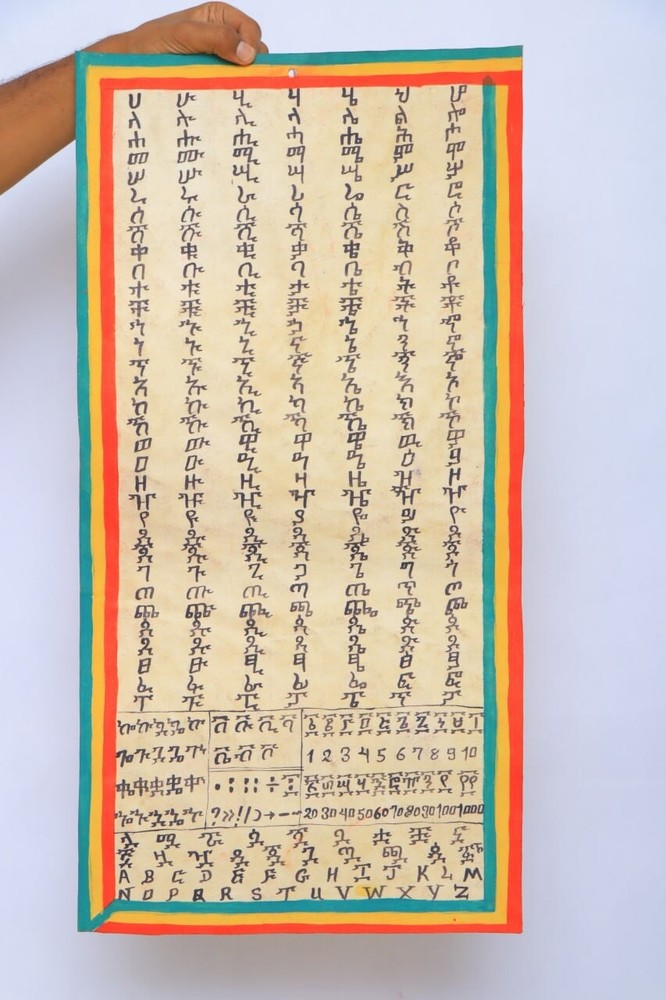 ሀ ሁ ሂ ሃ ሄ ህ ሆ
ለ ሉ ሊ ላ ሌ ል ሎ
ሐ ሑ ሒ ሓ ሔ ሕ ሖ
መ ሙ ሚ ማ ሜ ም ሞ
ሠ ሡ ሢ ሣ ሤ ሥ ሦ
ረ ሩ ሪ ራ ሬ ር ሮ
ሰ ሱ ሲ ሳ ሴ ስ ሶ
ሸ ሹ ሺ ሻ ሼ ሽ ሾ
ቀ ቁ ቂ ቃ ቄ ቅ ቆ
በ ቡ ቢ ባ ቤ ብ ቦ
ተ ቱ ቲ ታ ቴ ት ቶ
ቸ ቹ ቺ ቻ ቼ ች ቾ
ኀ ኁ ኂ ኃ ኄ ኅ ኆ
ነ ኑ ኒ ና ኔ ን ኖ
ኘ ኙ ኚ ኛ ኜ ኝ ኞ
አ ኡ ኢ ኣ ኤ እ ኦ
ከ ኩ ኪ ካ ኬ ክ ኮ
ኸ ኹ ኺ ኻ ኼ ኽ ኾ
ወ ዉ ዊ ዋ ዌ ው ዎ
ዐ ዑ ዒ ዓ ዔ ዕ ዖ
ዘ ዙ ዚ ዛ ዜ ዝ ዞ
ዠ ዡ ዢ ዣ ዤ ዥ ዦ
የ ዩ ዪ ያ ዬ ይ ዮ
ደ ዱ ዲ ዳ ዴ ድ ዶ
ጀ ጁ ጂ ጃ ጄ ጅ ጆ
ገ ጉ ጊ ጋ ጌ ግ ጎ
ጠ ጡ ጢ ጣ ጤ ጥ ጦ
ጨ ጩ ጪ ጫ ጬ ጭ ጮ
ጰ ጱ ጲ ጳ ጴ ጵ ጶ
ጸ ጹ ጺ ጻ ጼ ጽ ጾ
ፀ ፁ ፂ ፃ ፄ ፅ ፆ
ፈ ፉ ፊ ፋ ፌ ፍ ፎ
ፐ ፑ ፒ ፓ ፔ ፕ ፖ
ቨ ቩ ቪ ቫ ፩ ፪ ፫ ፬ ፭ ፮ ፯ ፰ ፱ ፲
ቬ ቭ ቮ 1 2 3 4 5 6 7 8 9 10
፳ ፴ ፵ ፶ ፷ ፸ ፹ ፺ ፻
20 30 40 50 60 70 80 90 100 1000
ሏ ሟ ሯ ሷ ሿ ቧ ቷ ቿ ኗ
A B C D E F G H I J K L M
N O P Q R S T U V W X Y Z